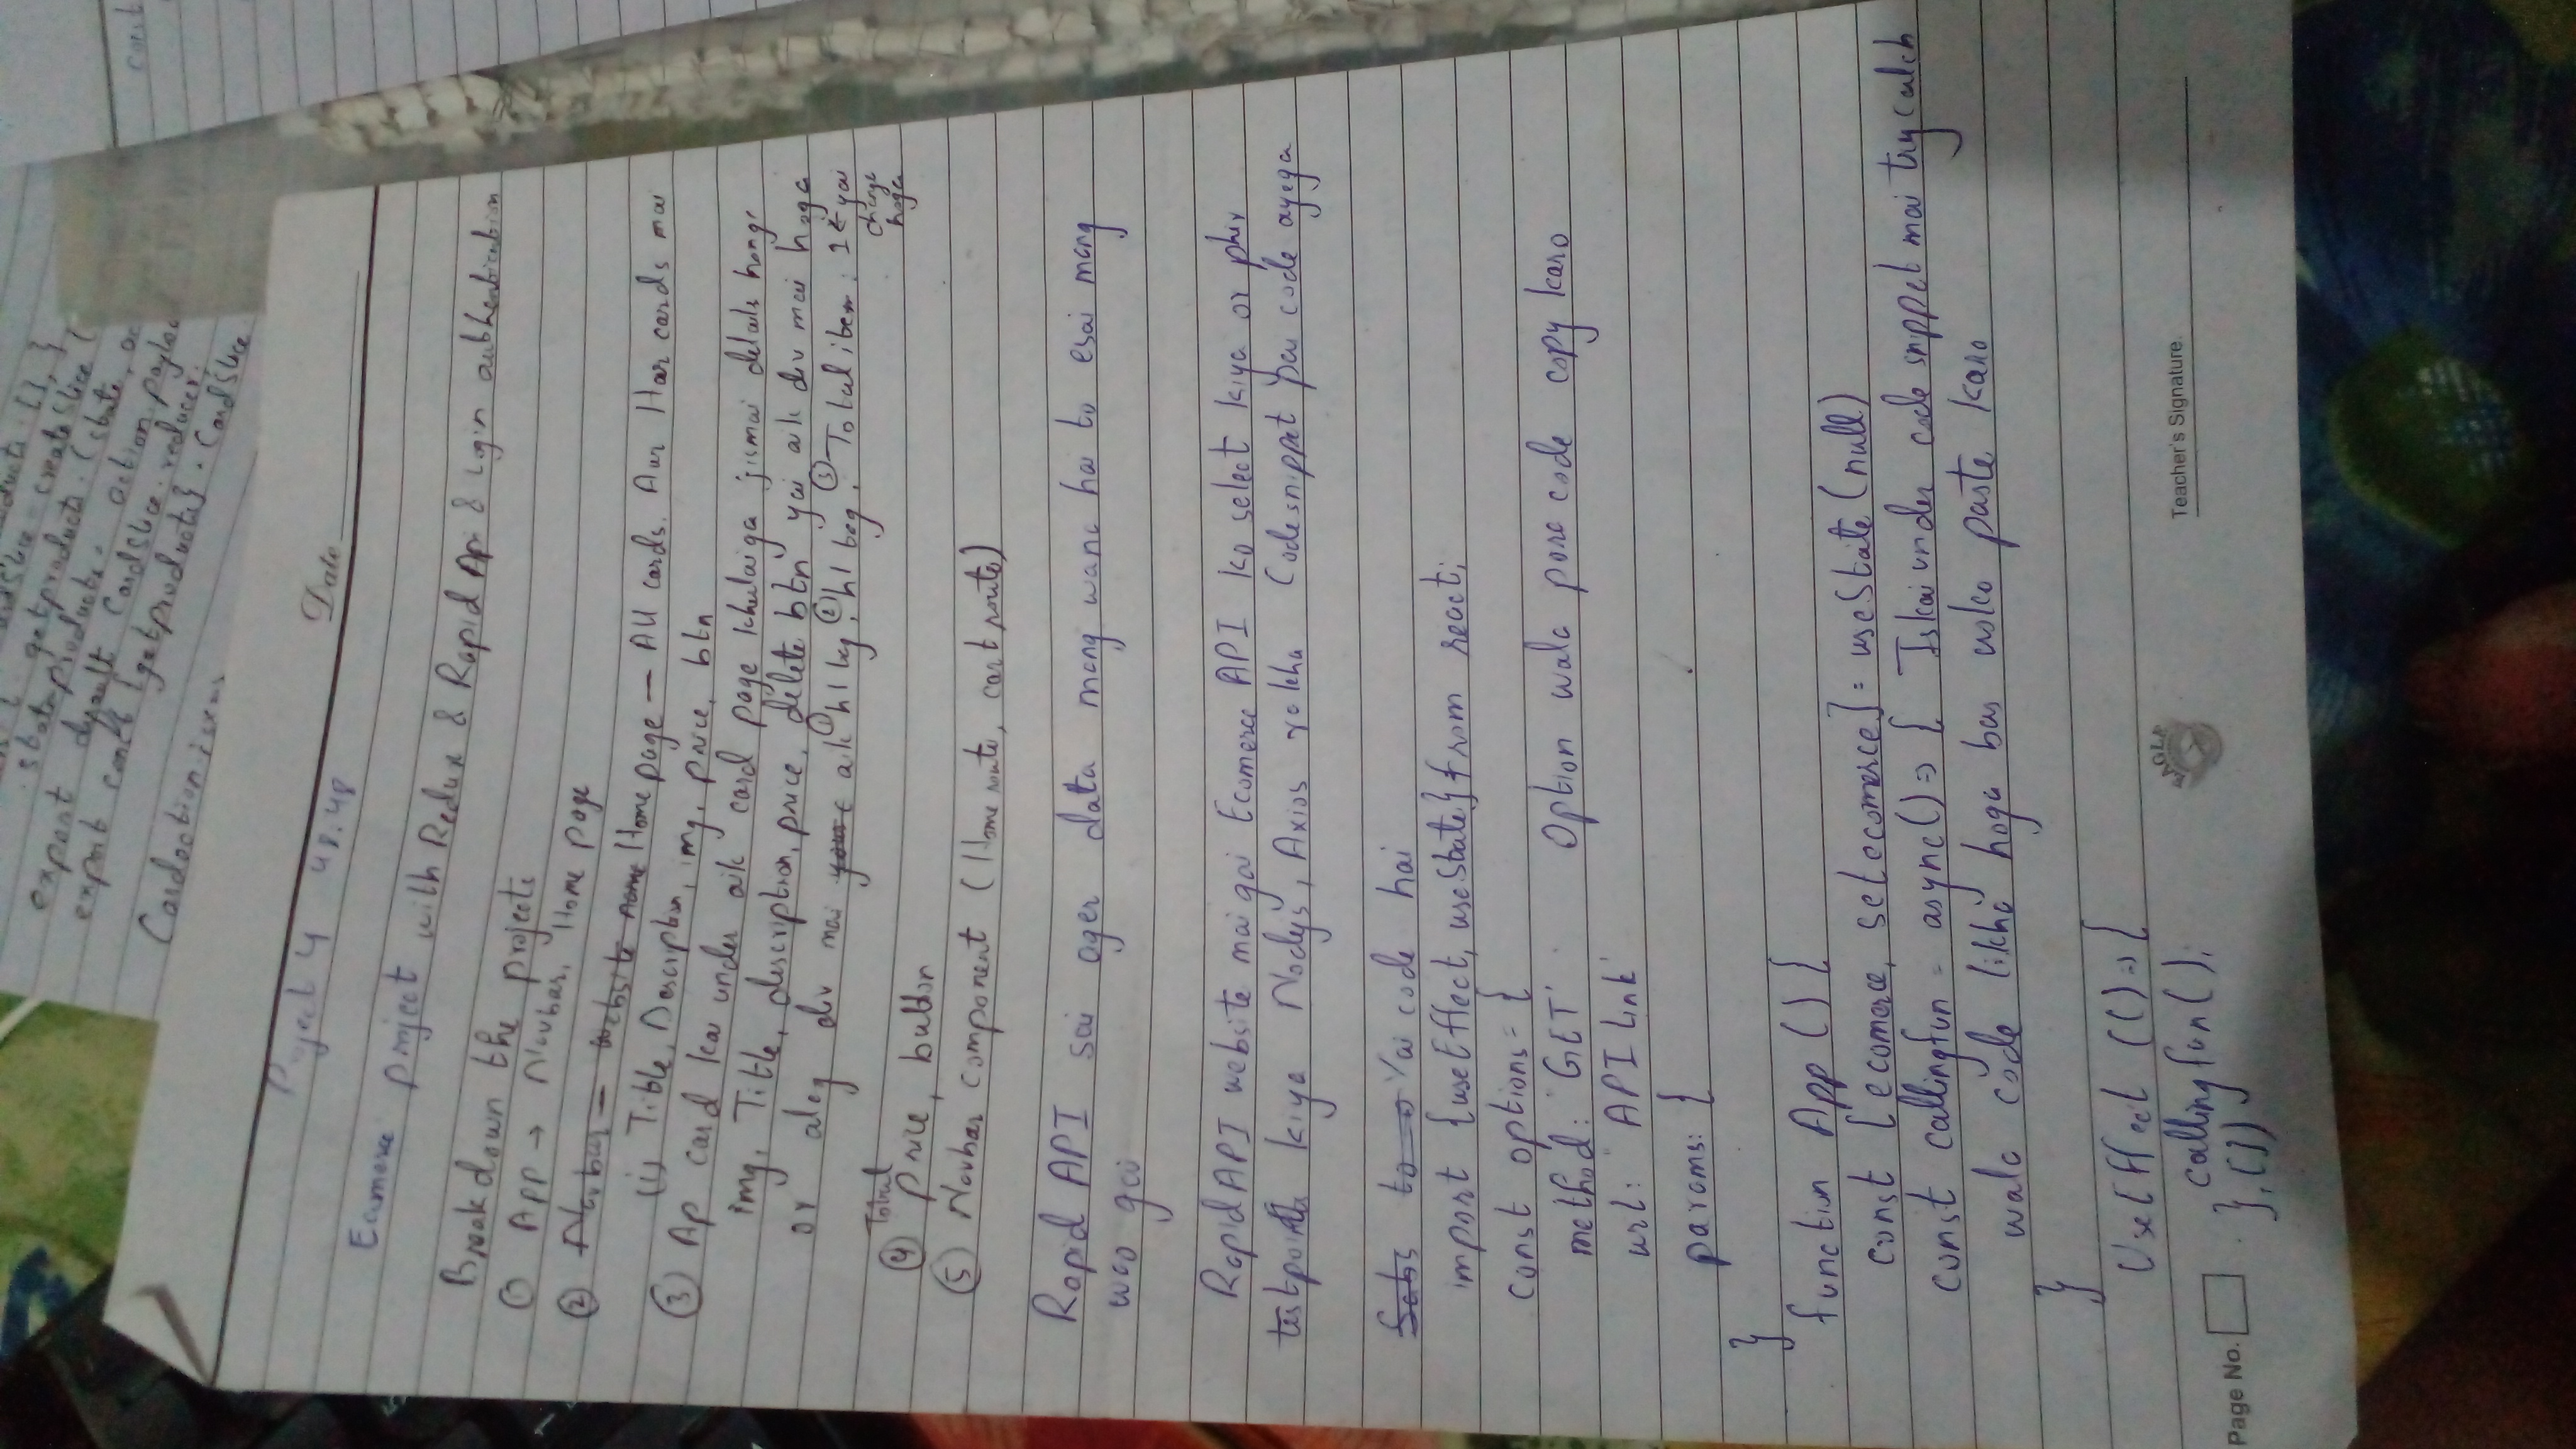 getproducts: (state, ac
state.products = action.payloa
export default CardSlice.reducer;
export const {getproducts} = CardSlice
Project 4 48.48
Date
Ecomerce project with Redux & Rapid Api & Login authentication
Breakdown the projects
① App → Navbar, Home page
② Navbar - website name Home page — All cards. Aur Har cards mai
(i) Title, Description, img, price, btn
③ Ap card kai under aik card page khulaiga jismai details honge
img, Title, description, price, delete btn yai aik div mai hoga
or aleg div mai aik ① h1 beg, ② h1 beg, ③ Total item: 1 ← yai
change
hoga
④ Total Price, button
⑤ Navbar component (Home route, cart route)
Rapid API sai ager data mang wana hai to esai mang
wao gai
RapidAPI website mai gai Ecomerce API ko select kiya or phir
kiya Nodejs, Axios rakha Codesnippet pai code ayega
to Yai code hai
import {useEffect, useState} from react;
const options = {
method: 'GET' Option wala pora code copy karo
url: 'API Link'
params: {
}
function App () {
const [ecomerce, setecomerce] = useState (null)
const callingfun = async() => { Iskai under code snippet mai try catch
wala code likha hoga bas usko paste karo
}
UseEffect (() => {
callingfun();
}, [])
EAGLE
Teacher's Signature
Page No.